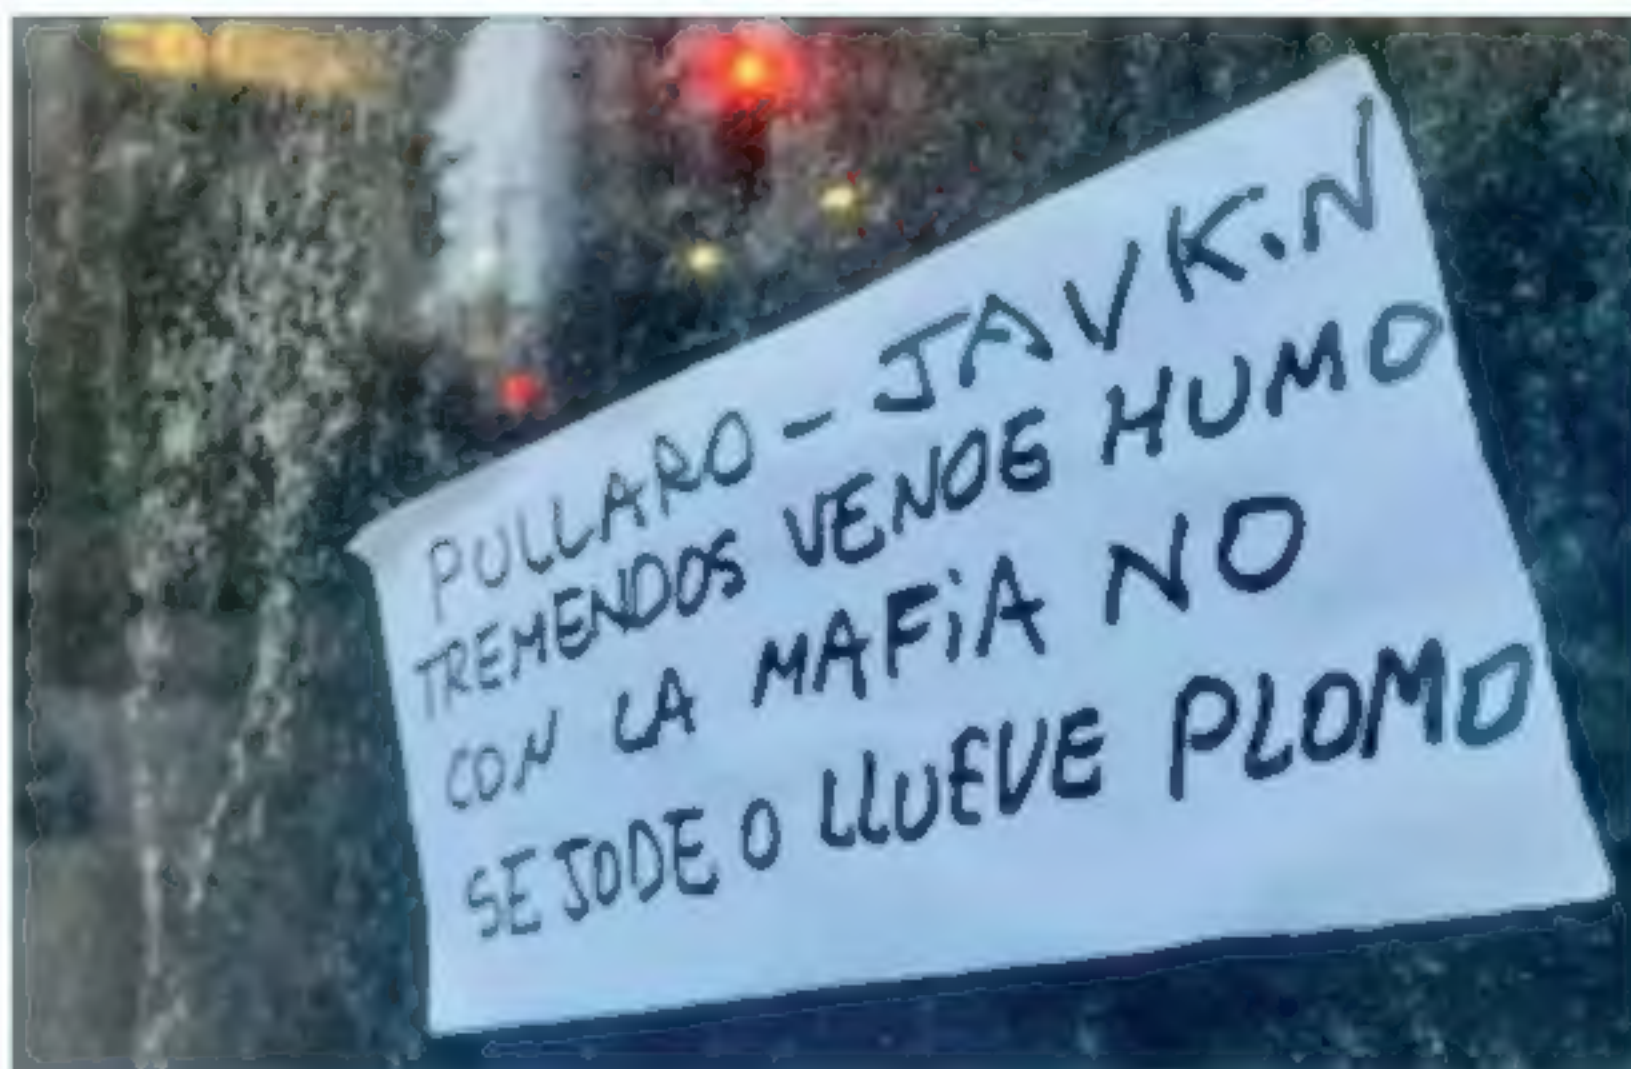 PULLARO - JAVKiN
TREMENDOS VENDE HUMO
CON LA MAFiA NO
SE JODE O LLUEVE PLOMO